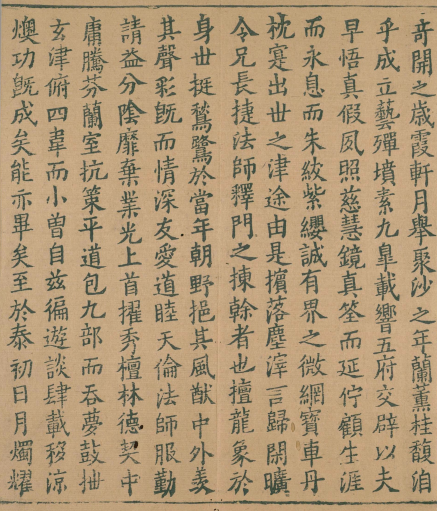 奇開之歲霞軒月舉聚沙之年蘭薰桂馥洎
乎成立藝殫墳素九皐載響五府交辟以夫
早悟真假夙照慈慧鏡真筌而延佇顧生涯
而永息而朱紱紫纓誠有界之微網寶車丹
枕寔出世之津途由是擯落塵滓言歸閑曠
令兄長捷法師釋門之揀榦者也擅龍象於
身世挺鶖鷺於當年朝野挹其風猷中外羨
其聲彩既而情深友愛道睦天倫法師服勤
請益分陰靡棄業光上首擢秀檀林德契中
庸騰芬蘭室抗策平道包九部而吞夢鼓枻
玄津俯四韋而小魯自茲徧遊談肆載移涼
燠功既成矣能亦畢矣至於泰初日月燭耀